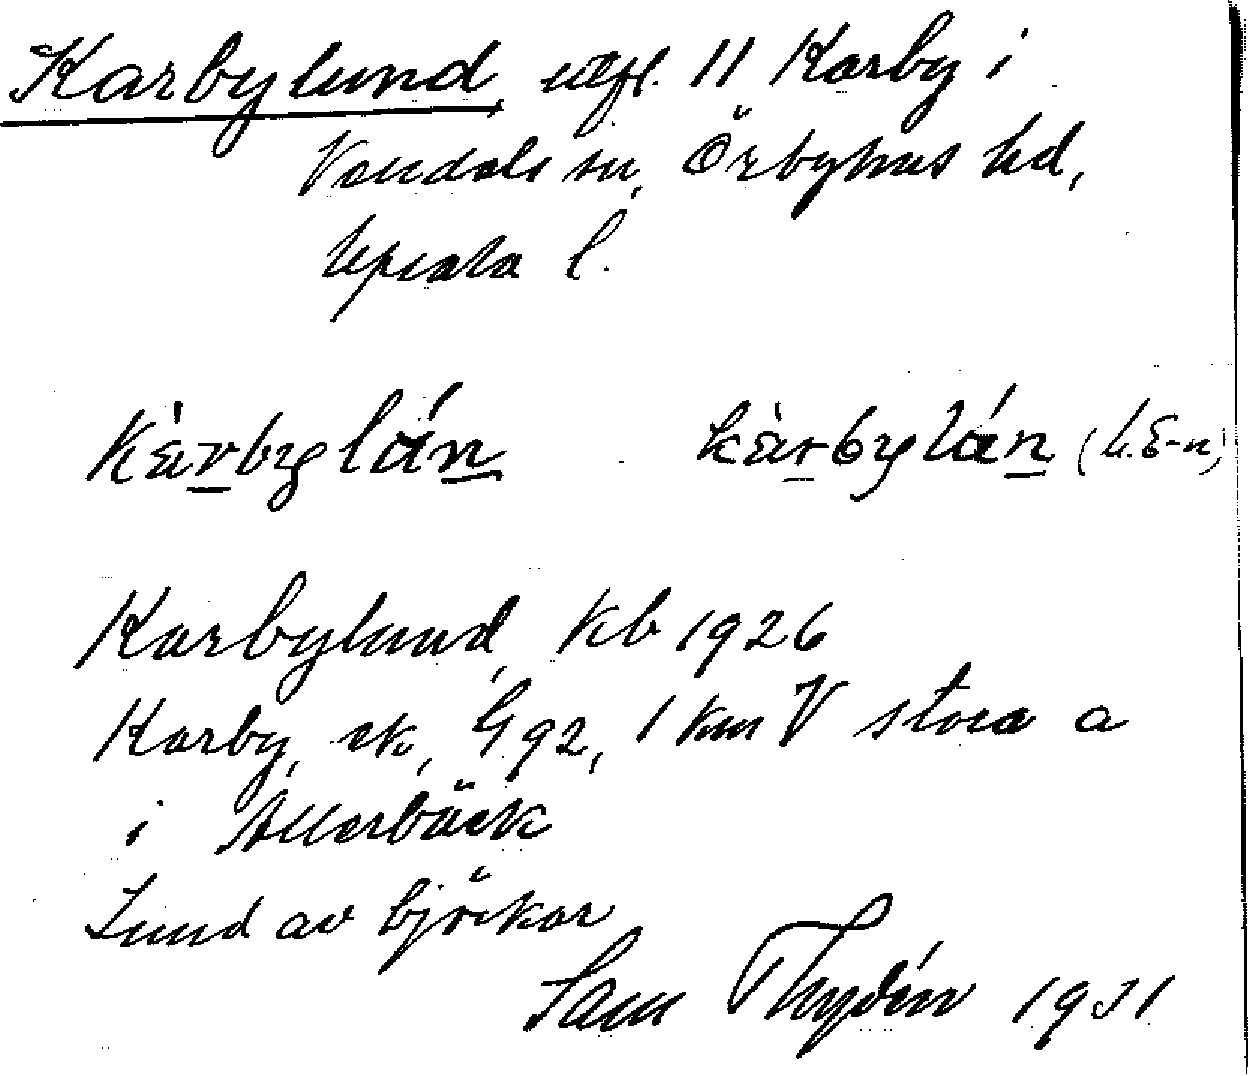 Karbylund, utfl. 11 Karby i
Vendels sn, Örbyhus hd,
Upsala l.
kàrbylán kàrbylán (U.E-n)
Karbylund, kb 1926
Karby, ek, G 92, 1 km V stora a
i Åkerbäck
Lund av björkar
Sam Thydén 1931